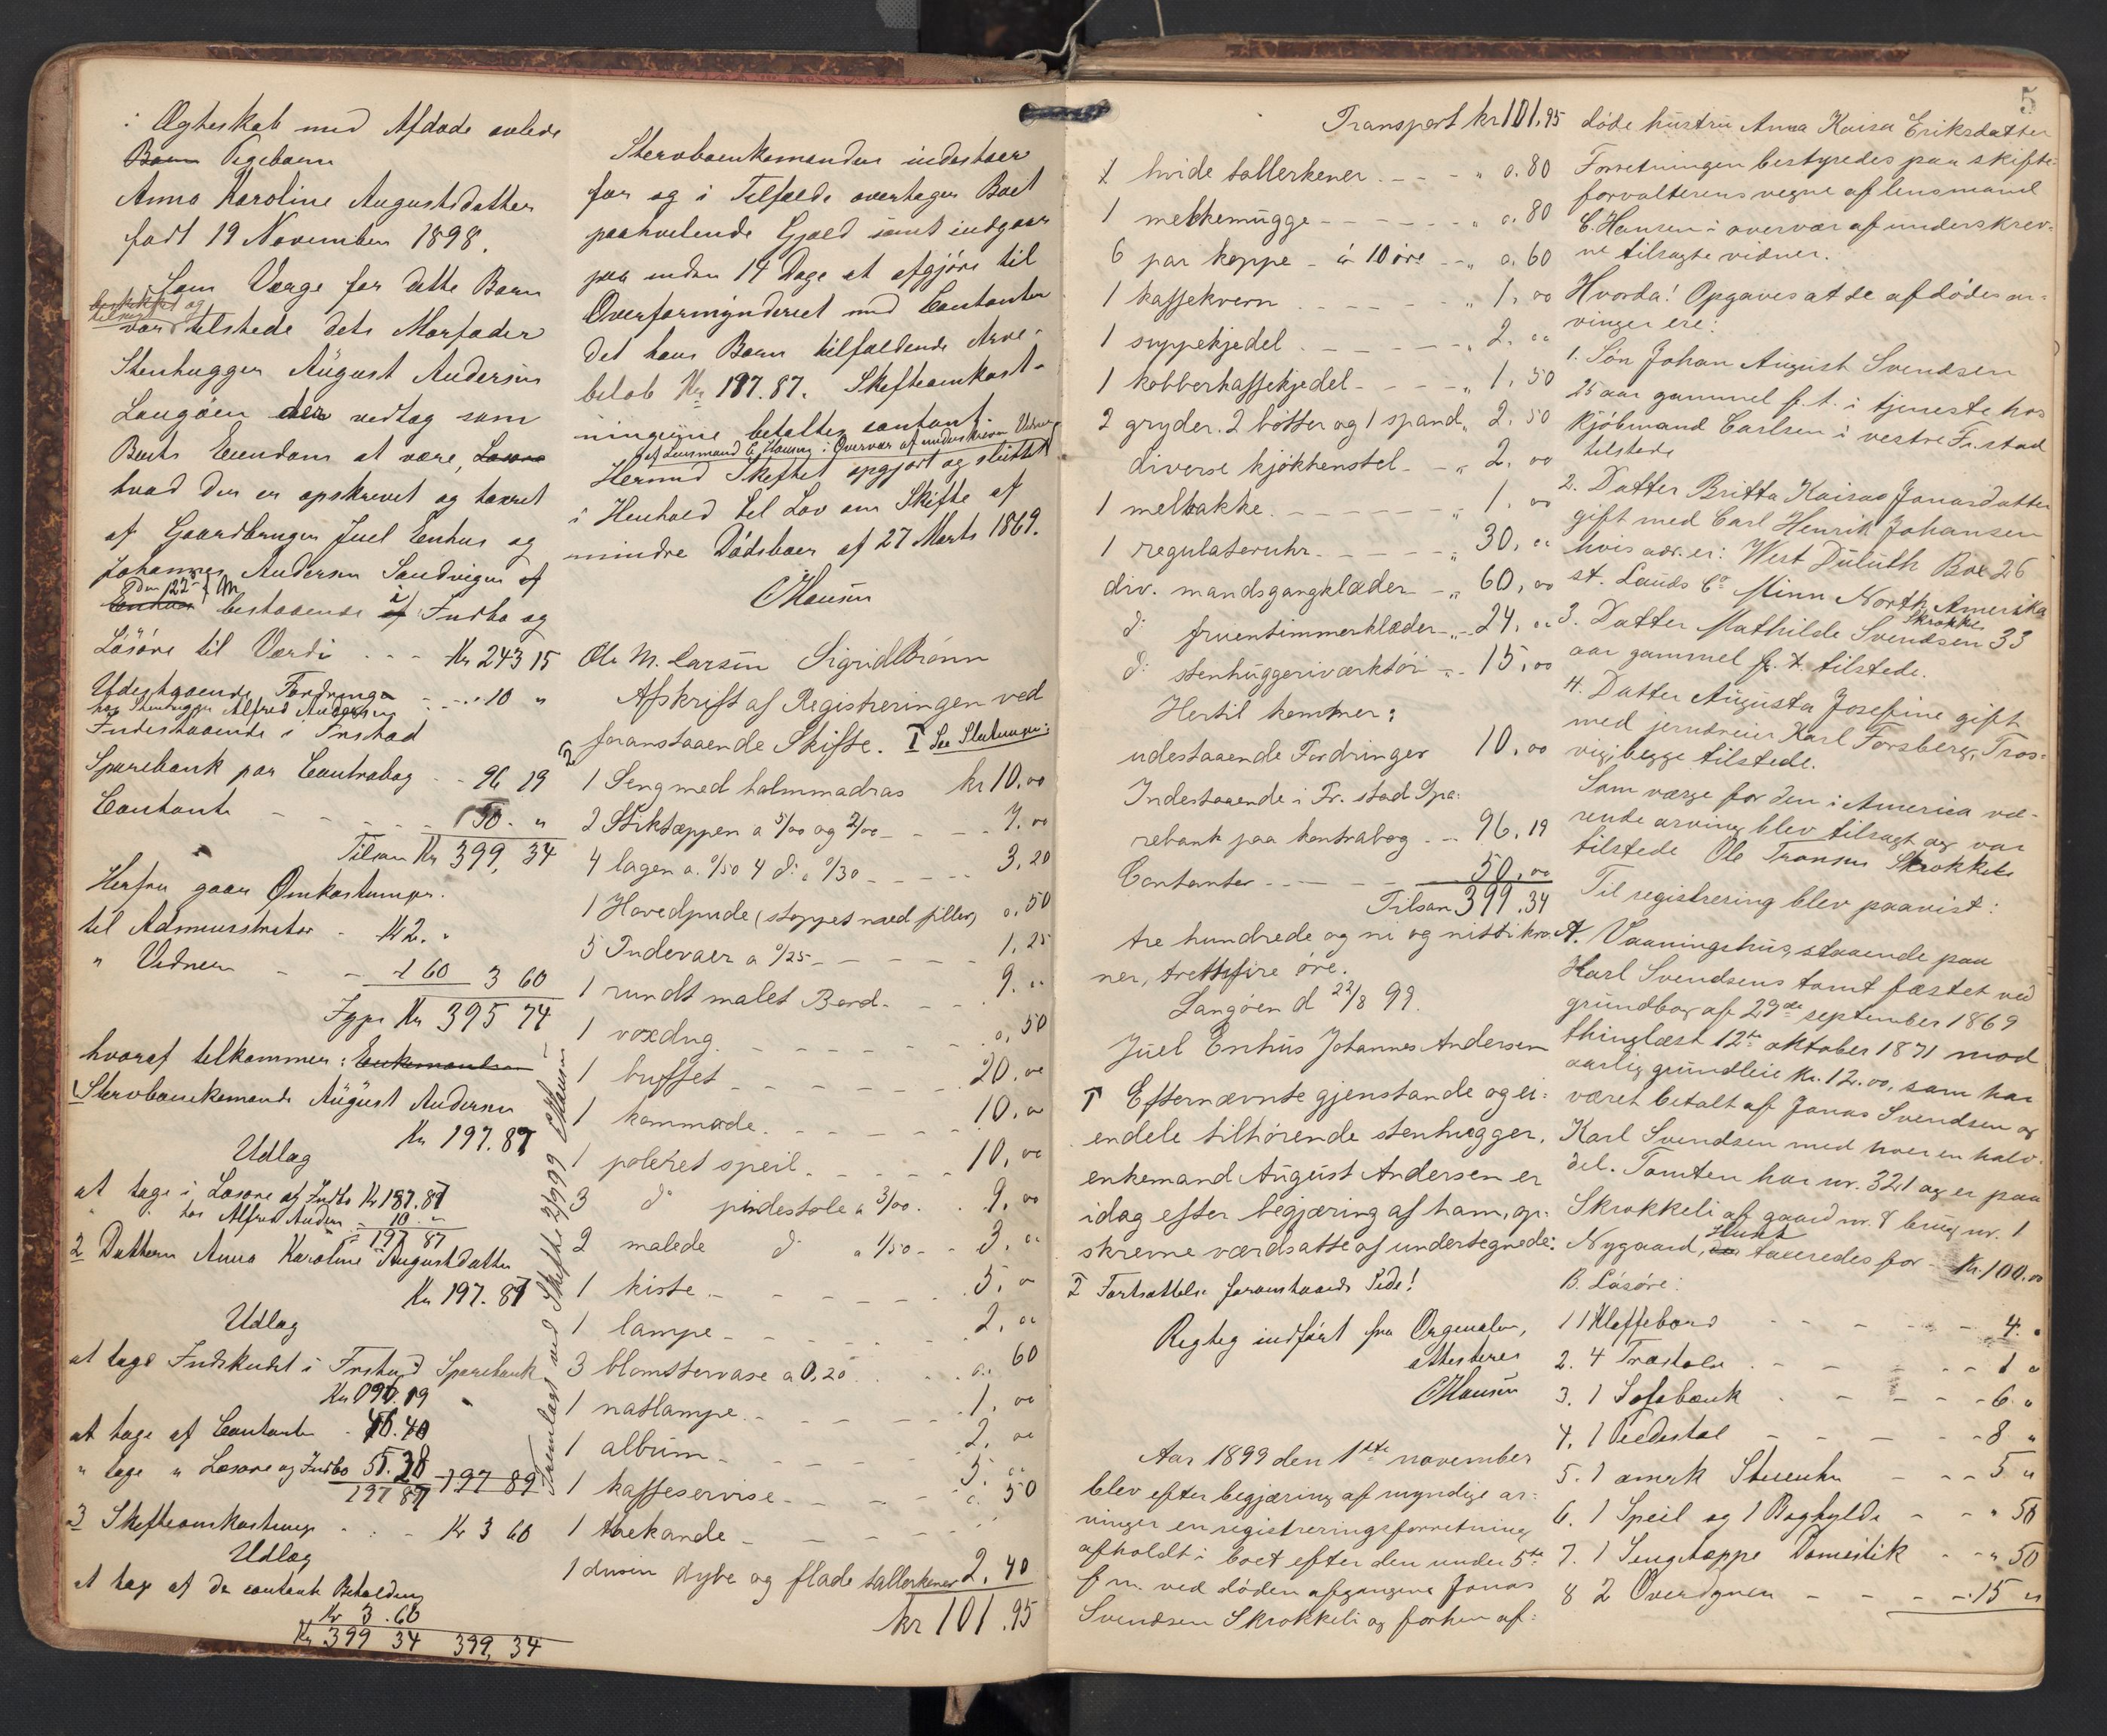 i Ægteskab med Afdøde avlede
Barn Pigebarn
Anna Karoline Augustsdatter
født 19 November 1898.
Som Værge for dette Barn
beskikket og
tilsagt
var tilstede dets Morfader
Stenhugger August Andersen
Langøen der vedtog som
Boets Eiendom at være,
hvad der er opskrevet og taxeret
af Gaardbruger Juel Enhus og
Johannes Andersen Sandvigen af
den 22
8
Enhus bestaaende i af Indbo og
Løsøre til Værdi - - - Kr 243 15
Udestaaende Fordringer - - - 10 "
hos Stenhugger Alfred Andersen
Indestaaende i Frstad
Sparebank paa Contrabog - - 96 19
Contant - - - - - 50 - "
Tilsam Kr 399, 34
Herfra gaar Omkostninger.
til Administrator - Kr 2. "
" Vidner - - 1 60 3 60
Igjen Kr 395 74
hvoraf tilkommer: Enkemanden
1 Stervboenkemand August Andersen
Kr 197.87
Udlæg
at tage i Løsøre og Indbo Kr 187.87
" hos Alfred Anders - 10 "
197 87
2 Datteren Anna Karoline Augustdatter
Kr 197.87
Udlæg
at tage Indskudet i Frstad Sparebank
Kr 96.19
at tage af Contanter - 46.40
" tage " Løsøre og Indbo 55.28
197 87 197 87
3 Skifteomkostninger - - - Kr 3 60
Udlæg
at tage af de contante Beholdning
Kr 3.60
Kr 399 34 399, 34
Stervboenkemanden indestaar
for og i Tilfælde overtager Boet
paahvilende Gjæld samt indgaar
paa inden 14 Dage at afgjøre til
Overformynderiet med Contanter
det hans Barn tilfaldende Arve-
beløb Kr 197.87. Skifteomkost-
ningerne betaltes contant.
af Lensmand C. Hansen i Overvær af underskrevne Vidner
Hermed Skiftet opgjort og sluttet
i Henhold til Lov om Skifte af
mindre Dødsboer af 27 Marts 1869.
CHansen
Ole M. Larsen Sigrid Brønn
Afskrift af Registreringen ved
foranstaaende Skifte. T See Slutningen:
2
1 Seng med halmmadras kr 10.00
2 Stiktæppen a 5/00 og 2/00 - - - - 7.00
4 lagen a 0/50 4 do a 0/30 - - - - - 3,20
1 Hovedpude (stoppet med filler) 0.50
5 Pudevaer a 0/25 - - - - - 1,25
1 rundt malet Bord - - - 9.00
1 voxdug - - - - - - - 0,50
1 buffet - - - - - - - 20.00
1 kommode - - - - - - 10.00
1 poleret speil - - - - - 10,00
3 do pindestole a 3/00 - - 9.00
2 malede do a 1/50 - - 3.00
1 kiste - - - - - - - 5.00
1 lampe - - - - - - 2.00
3 blomstervase a 0,20 - - - 0.60
1 natlampe - - - - - - 1.00
1 album - - - - - - 2.00
1 kaffeservise - - - - - 5.00
1 thekande - - - - - - 0.50
1 dusin dybe og flade tallerkener 2.40
kr 101.95
Fremlagt ved Skifte 2/9 99 CHansen
5
Transport kr 101.95
1 hvide tallerkener - - - " 0.80
1 melkemugge - - - - - - " 0.80
6 par koppe - á 10 øre - - " 0.60
1 kaffekvern - - - - - " 1.00
1 suppekjedel - - - - - - " 2.00
1 kobberkaffekjedel - - - - " 1.50
2 gryder. 2 bøtter og 1 spand " 2.50
diverse kjøkkenstel - - " 2.00
1 melbakke - - - - - - " 1.00
1 regulateruhr - - - - - " 30.00
div. mandsgangklæder - - " 60,00
do fruentimmerklæder - " - 24.00
do stenhuggeriværktøi - - 15,00
Hertil kommer:
udestaaende Fordringer 10.00
Indestaaende i Fr.stad Spa-
rebank paa kontrabog - - 96.19
Contanter - - - - - 50.00
Tilsam 399.34
tre hundrede og ni og nitti kro-
ner, trettifire øre.
Langøen d 22/8 99.
Juel Enhus Johannes Andersen
T Efternævnte gjenstande og ei-
endele tilhørende stenhugger,
enkemand August Andersen er
idag efter begjæring af ham, op-
skrevne værdsatte af undertegnede:
I Fortsættelse foranstaaende Side!
Rigtig indført fra Orginalen,
attesteres
CHansen
Aar 1899 den 1ste november
blev efter begjæring af myndige ar-
vinger en registreringsforretning
afholdt i boet efter den under 5te
f.m. ved døden afgangne Jonas
Svendsen Skrokkeli og forhen af-
døde hustru Anna Kaisa Eriksdatter
Forretningen bestyredes paa skifte-
forvalterens vegne af lensmand
C. Hansen i overvær af underskrev-
ne tilsagte vidner.
Hvorda! Opgaves at de afdødes ar-
vinger ere:
1. Søn Johan August Svendsen
25 aar gammel f.t. i tjeneste hos
Kjøbmand Carlsen i vestre Fr.stad
tilstede
2. Datter Britta Kaisa Jonasdatter
gift med Carl Henrik Johansen
hvis adr. er: West Duluth Box 26
st. Louis Co Minn North Amerika
Skrokke
3. Datter Mathilde Svendsen 33
aar gammel f.t. tilstede.
4. Datter Augusta Josefine gift
med jerndreier Karl Forsberg, Tros-
vig, begge tilstede.
Som værge for den i America væ-
rende arving blev tilsagt og var
tilstede Ole Transen Skrokkeli
Til registrering blev paavist:
A. Vaaningshus, staaende paa
Karl Svendsens tomt fæstet ved
grundbog af 29de september 1869
thinglæst 12te oktober 1871 mod
aarlig grundleie kr. 12.00, som har
været betalt af Jonas Svendsen og
Karl Svendsen med hver en halv-
del. Tomten har nr. 321 og er paa
Skrokkeli af gaard nr. 8 brug nr. 1
Huset
Nygaard, taxeredes for - Kr. 100.00
B. Løsøre:
1 1 Klaffebord - - - - - - 4. "
2. 4 Træstole - - - - - 1 "
3. 1 Sofabænk - - - - - 6. "
4. 1 - - - - - 8 "
5. 1 amrk Stueuhr - - - 5 "
6. 1 Speil og 1 Boghylde - - " 50
7. 1 Sengetæppe Domestik - - " 50
8 2 Overdyner - - - - - 15 "